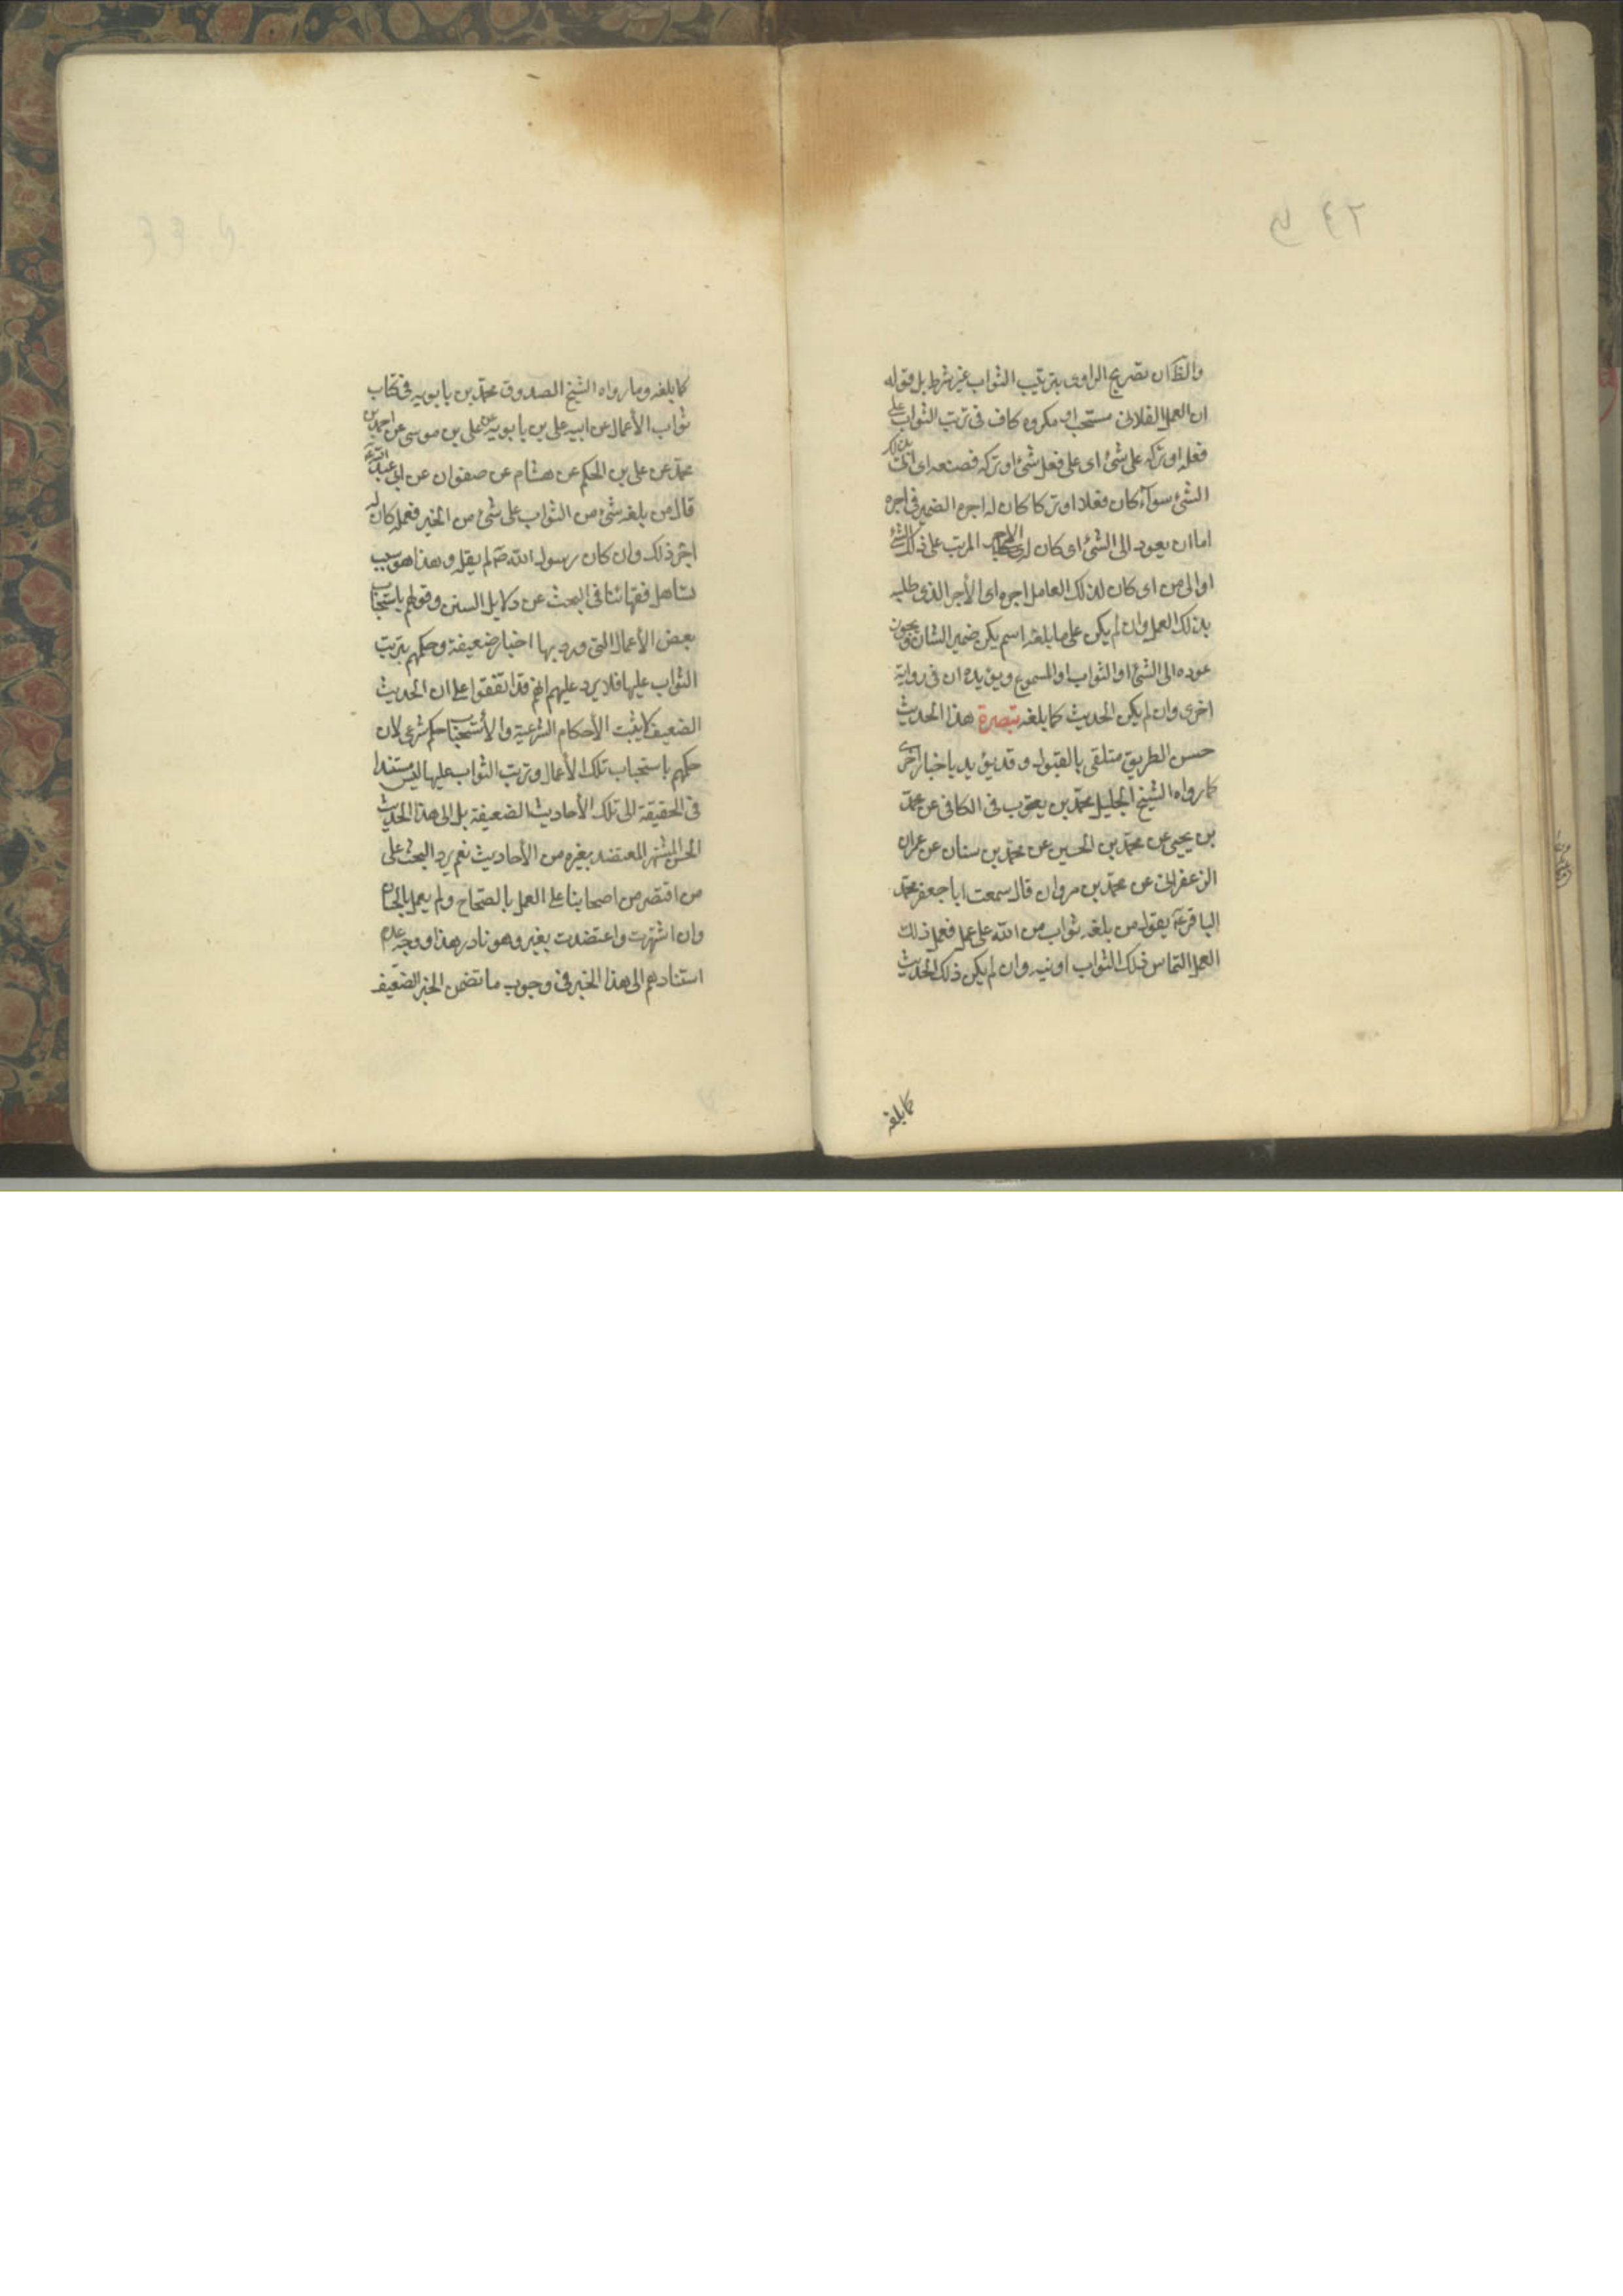 والظ ان تصريح الراوى بترتيب الثواب غير شرط بل قوله
ان العمل الفلانى مستحب او مكروه كاف فى ترتب الثواب على
فعله او تركه على شئ اى على فعل شئ او تركه فصنعه اى اتى بذلك
الشئ سوآء كان فعلا او تركا كان له اجره الضمير فى اجره
اما ان يعود الى الشئ اى كان له الاجر المرتب على ذلك الشئ
او الى من اى كان لذلك العامل اجره اى الأجر الذى طلبه
بذلك العمل وان لم يكن على ما بلغه اسم يكن ضمير الشان ويجوز
عوده الى الشئ او الثواب او المسموع ويؤيده ان فى رواية
اخرى وان لم يكن الحديث كما بلغه تبصرة هذا الحديث
حسن الطريق متلقى بالقبول وقد يؤيد باخبار اخرى
كما رواه الشيخ الجليل محمد بن يعقوب فى الكافى عن محمد
بن يحيى عن محمد بن الحسين عن محمد بن سنان عن عمران
الزعفرانى عن محمد بن مروان قال سمعت ابا جعفر محمد
الباقر ع يقول من بلغه ثواب من الله على عمل فعمل ذلك
العمل التماس ذلك الثواب اوتيه وان لم يكن ذلك الحديث
كما بلغه
كما بلغه وما رواه الشيخ الصدوق محمد بن بابويه فى كتاب
ثواب الأعمال عن ابيه على بن بابويه عن على بن موسى عن احمد بن
محمد عن على بن الحكم عن هشام عن صفوان عن ابى عبد الله ع
قال من بلغه شئ من الثواب على شئ من الخير فعمله كان له
اجر ذلك وان كان رسول الله ص لم يقله وهذا هو سبب
تساهل فقهائنا فى البحث عن دلايل السنن وقولهم باستحباب
بعض الأعمال التى ورد بها اخبار ضعيفة وحكمهم بترتب
الثواب عليها فلا يرد عليهم انهم قد اتفقوا على ان الحديث
الضعيف لا يثبت الأحكام الشرعية والأستحباب حكم شرعى لان
حكمهم باستحباب تلك الأعمال وترتب الثواب عليها ليس مستندا
فى الحقيقة الى تلك الأحاديث الضعيفة بل الى هذا الحديث
الحسن المشتهر المعتضد بغيره من الأحاديث نعم يرد البحث على
من اقتصر من اصحابنا على العمل بالصحاح ولم يعمل بالحسان
وان اشتهرت واعتضدت بغير وهو نادر هذا ووجه عدم
استنادهم الى هذا الخبر فى وجوب ما تضمن الخبر الضعيف